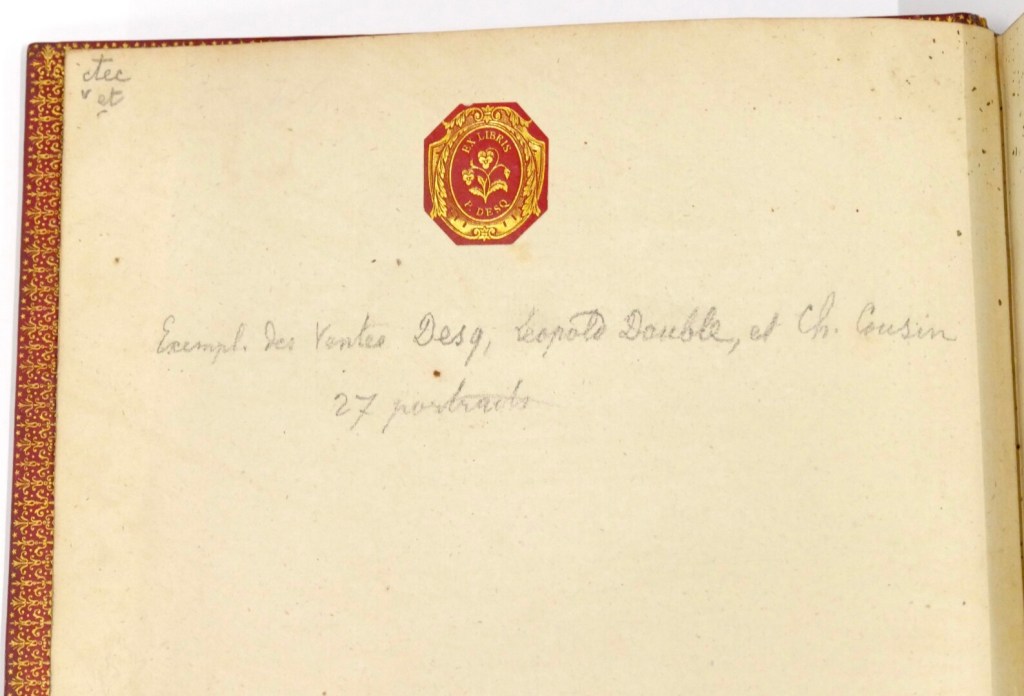 et
EX LIBRIS
P. DESQ
Exempl. des Ventes Desq, Léopold Double, et Ch. Cousin
27 portraits